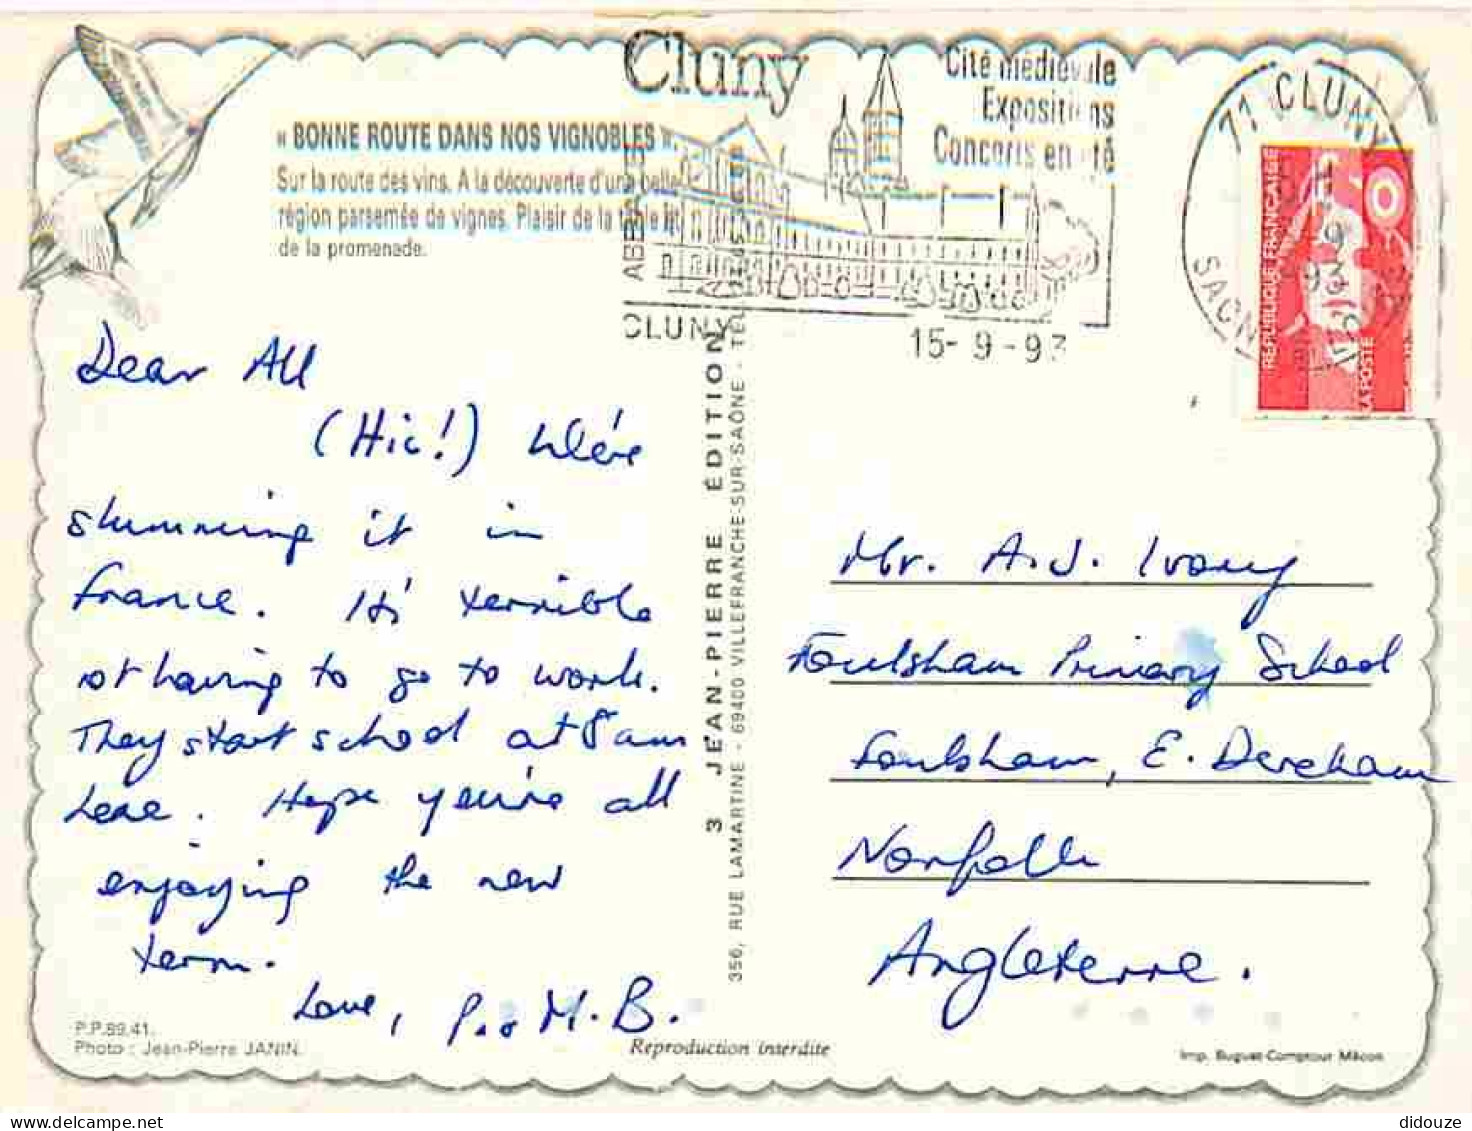 Cluny
Cité médiévale
Expositions
Concerts en été
71 CLUNY
SAON
CLUNY
15-9-93
RÉPUBLIQUE FRANÇAISE
LA POSTE
« BONNE ROUTE DANS NOS VIGNOBLES ».
Sur la route des vins. A la découverte d'une belle
région parsemée de vignes. Plaisir de la table et
de la promenade.
Dear All
(Hic!) We're
slumming it in
France. It's terrible
not having to go to work.
They start school at 8 am
here. Hope you're all
enjoying the new
term.
Love, P. & M. B.
P.P.89.41.
Photo : Jean-Pierre JANIN.
3 JEAN-PIERRE ÉDITION
356, RUE LAMARTINE - 69400 VILLEFRANCHE-SUR-SAÔNE - TÉL
Reproduction interdite
Mr. A.J. Ivory
Foulsham Primary School
Foulsham, E. Dereham
Norfolk
Angleterre.
Imp. Buguet-Comptour Mâcon
didouze